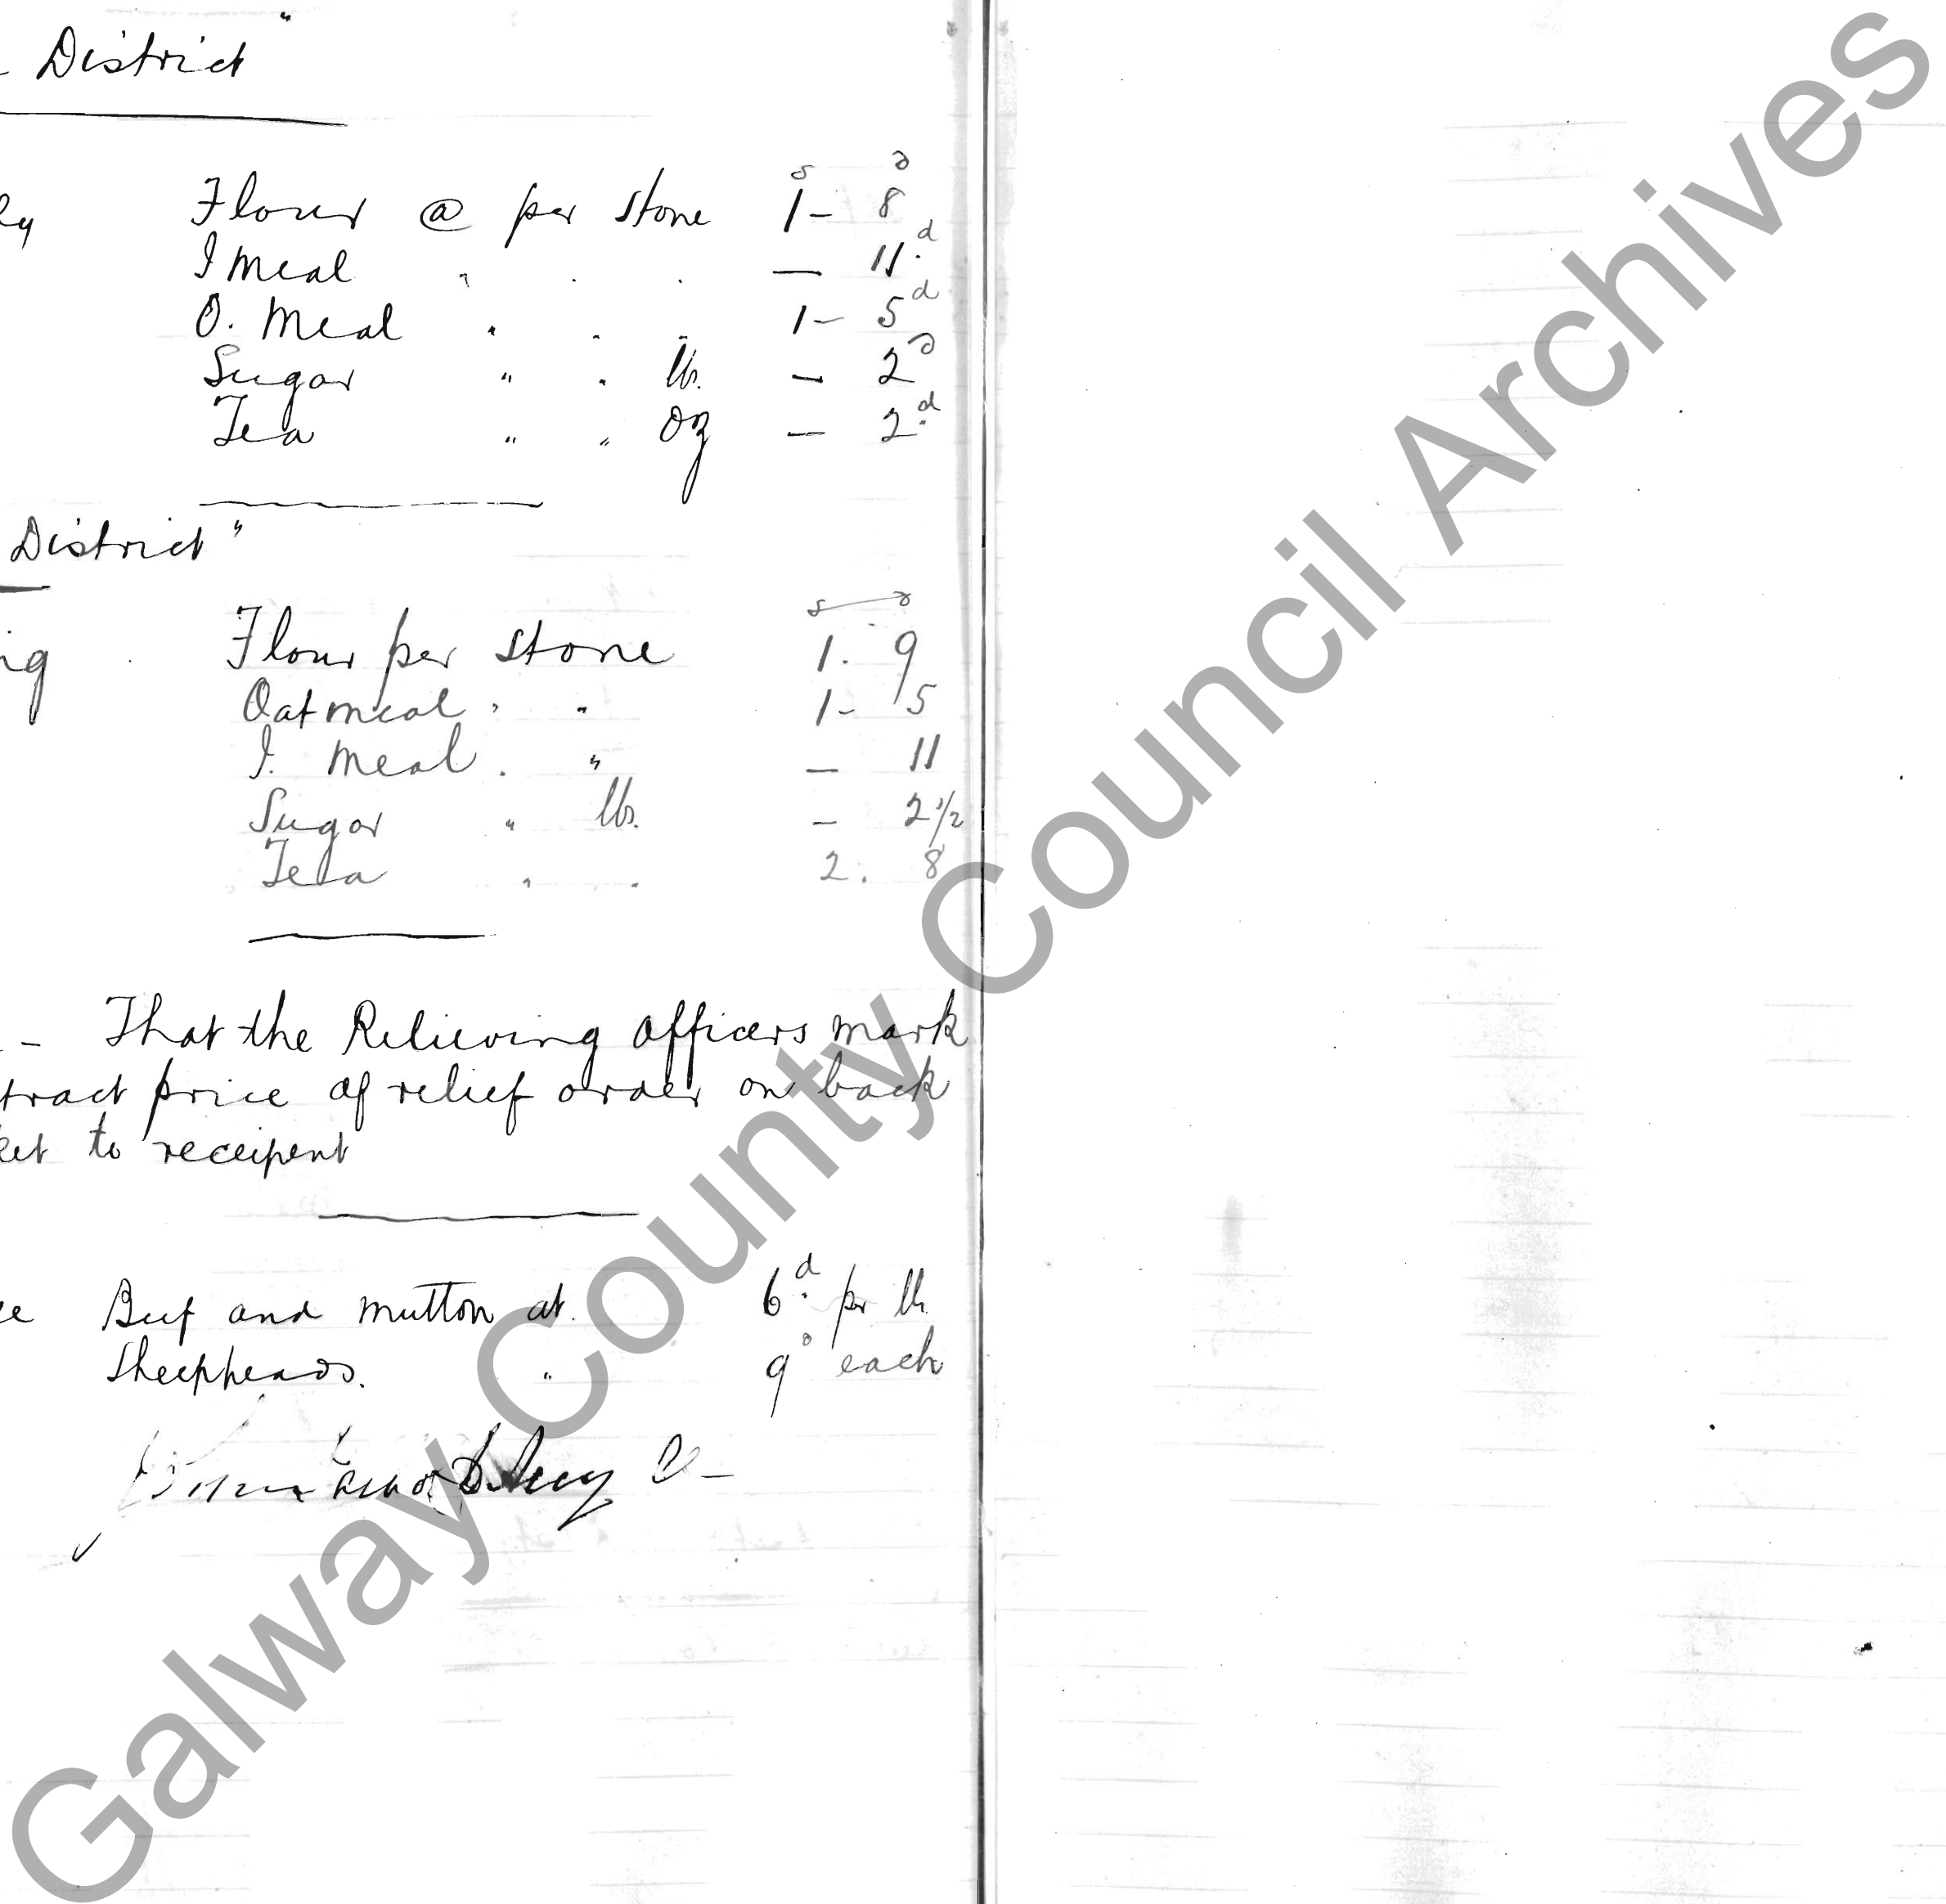 District"
Flour @ per stone 1 - 8
s d
I Meal " . . — 11d
O. Meal " . " 1 - 5d
Sugar " " lb. — 2d
Tea " " oz — 2d
District"
s d
Flour per stone 1. 9
Oatmeal " " 1 - 5
I. Meal . " — 11
Sugar " lb. — 2 1/2
Tea " . 2. 8
- That the Relieving Officers mark
tract price of relief order on back
ket to receipent
Beef and mutton at. 6d. per lb.
Sheepheads. " 9d each
Galway County Council Archives